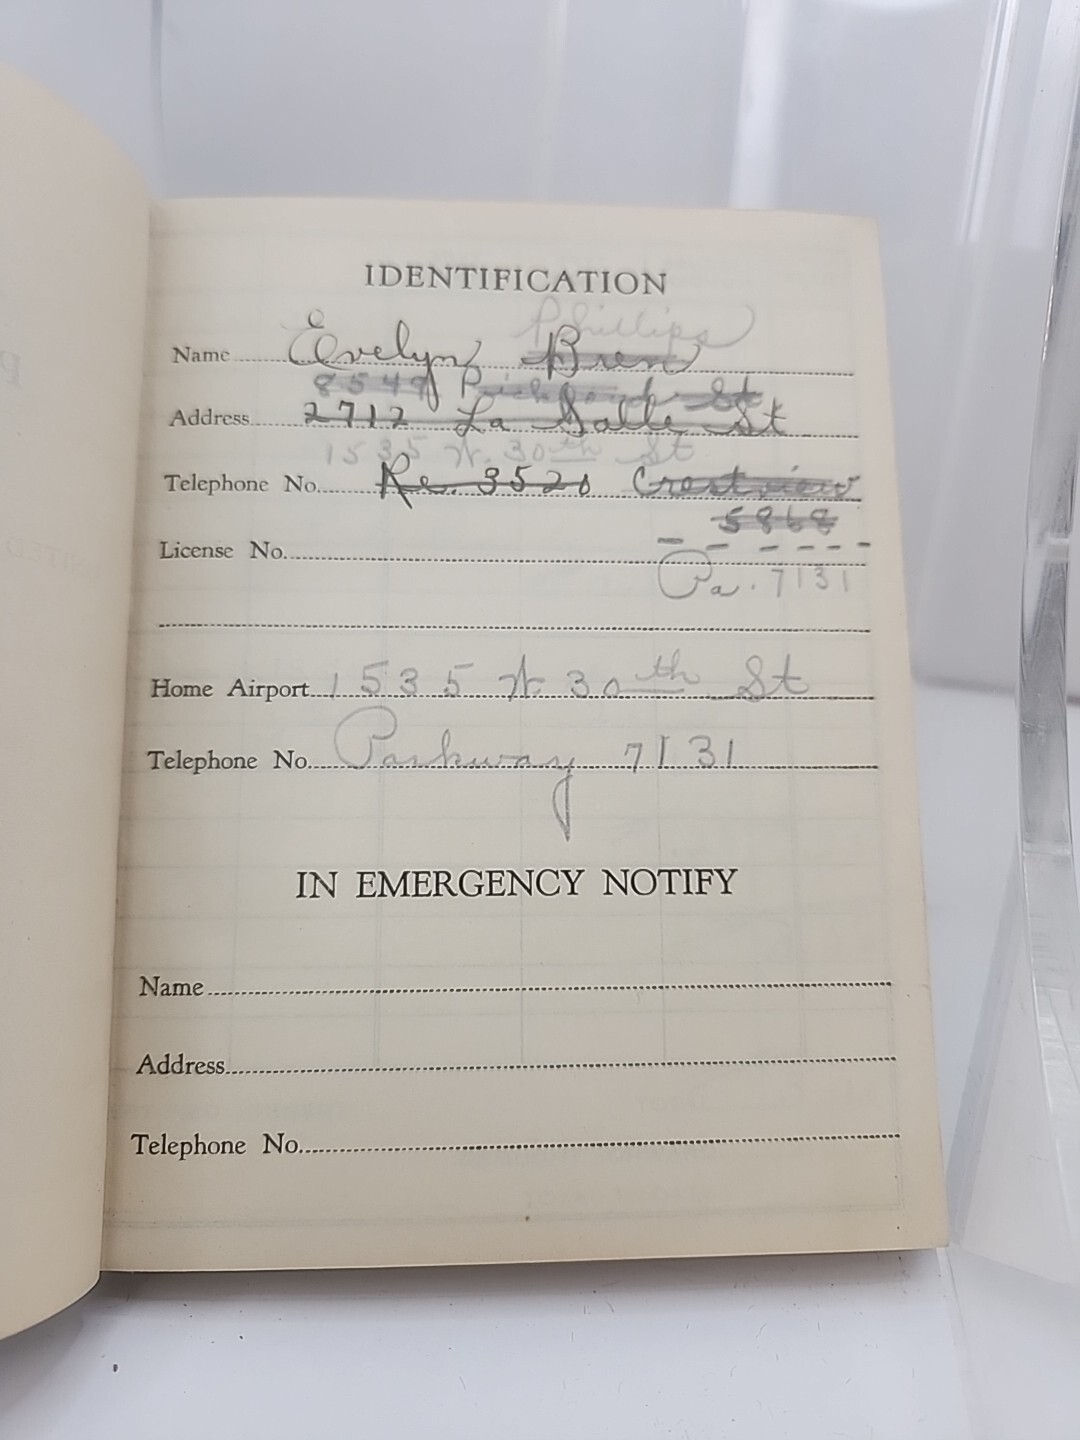 IDENTIFICATION
Phillips
Name Evelyn Bren
8549 St
Address 2712 La Salle St
1535 W. 30th St
Telephone No. Re. 3520 Crestview
5868
License No.
Pa. 7131
Home Airport 1535 W 30th St
Telephone No. Parkway 7131
IN EMERGENCY NOTIFY
Name
Address
Telephone No.